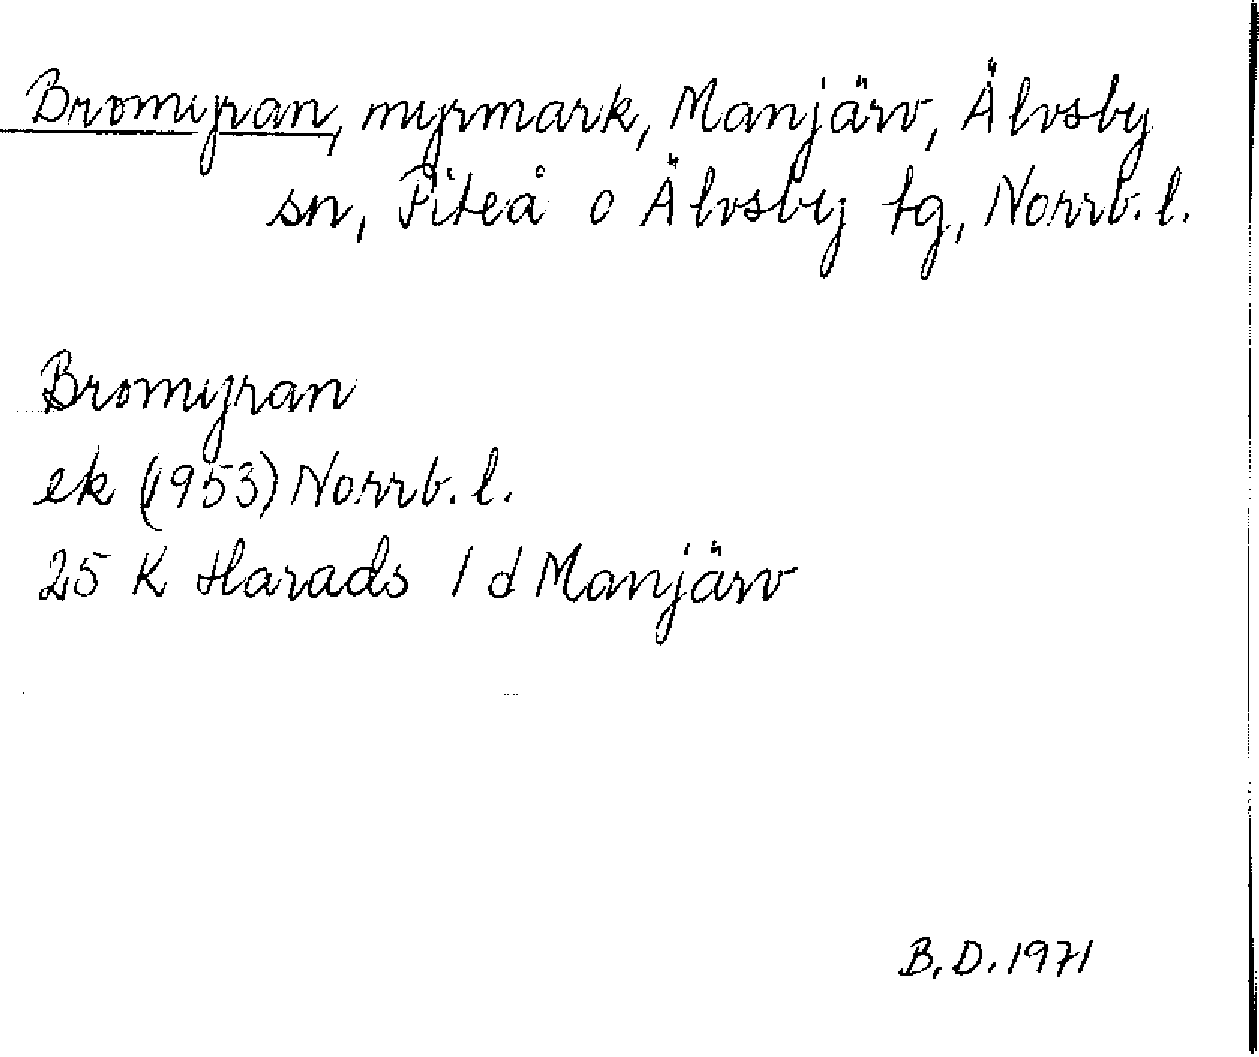 Bromyran, myrmark, Manjärv, Älvsby
sn, Piteå o Älvsby tg, Norrb. l.
Bromyran
ek (1953) Norrb. l.
25 K Harads 1 d Manjärv
B. D. 1971